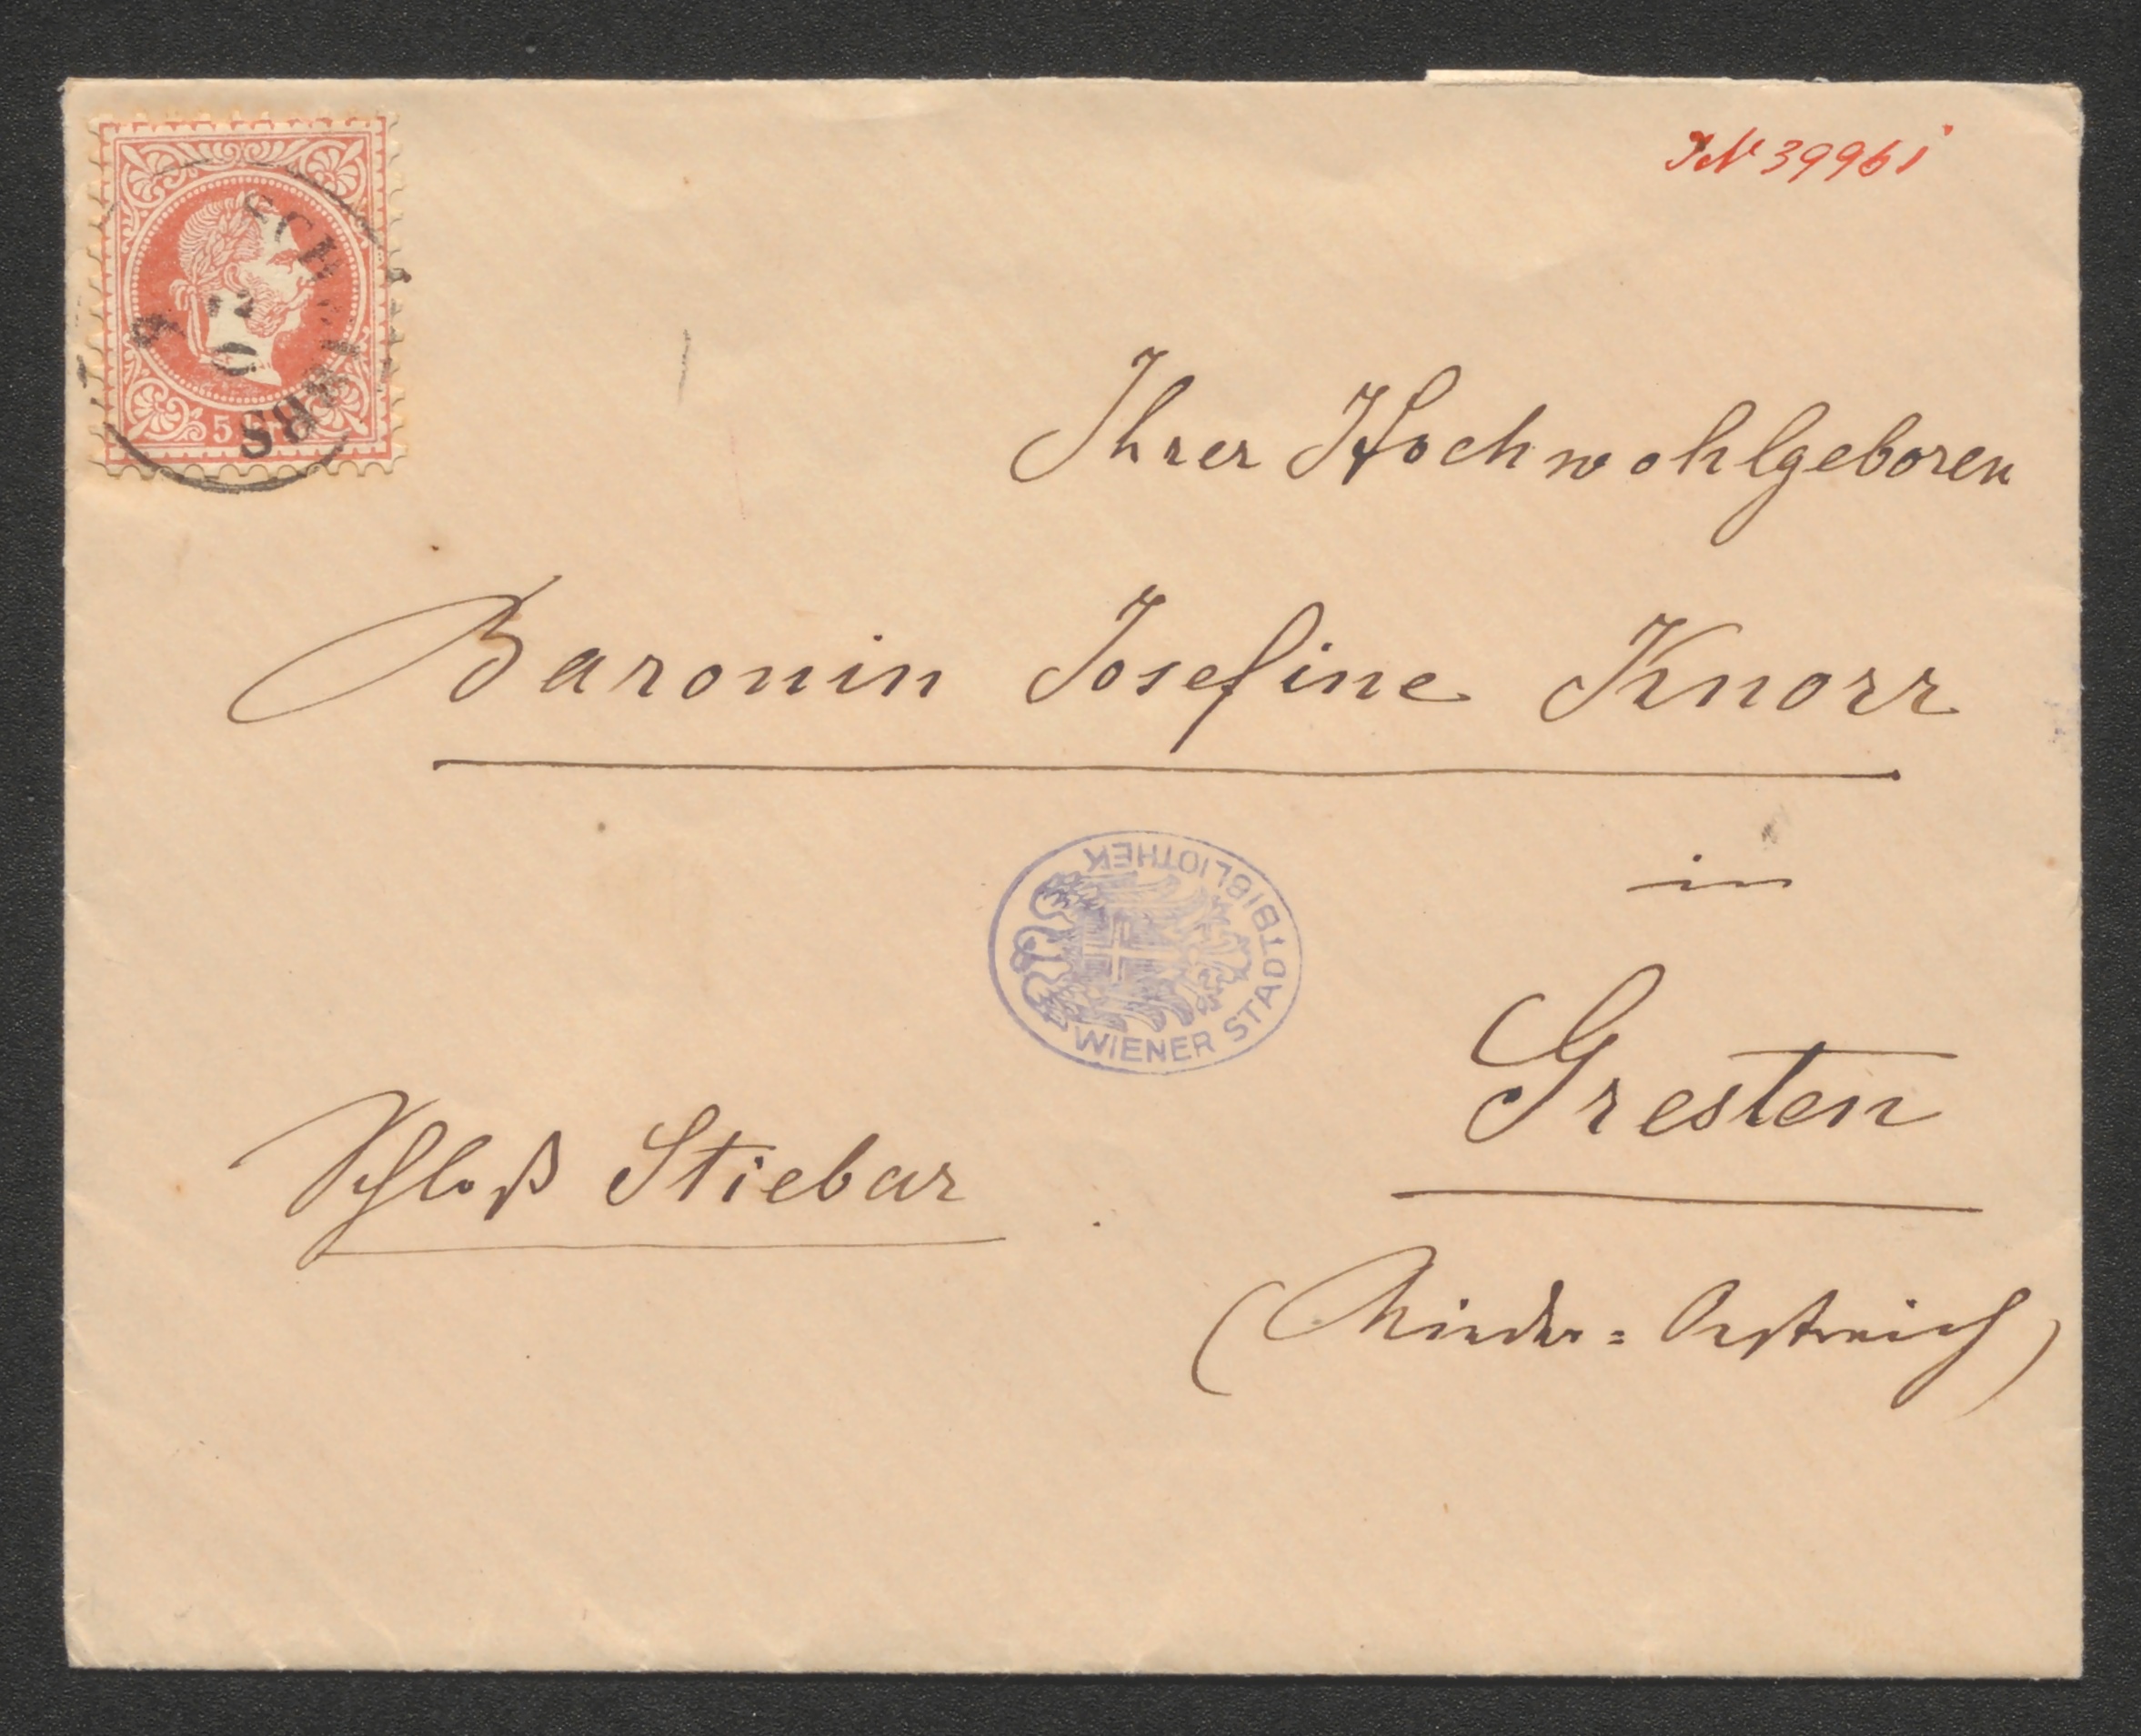 IN 39961
5
Ihrer Hochwohlgeboren
Baronin Josefine Knorr
in
WIENER STADTBIBLIOTHEK
Gresten
Schloß Stiebar
(Nieder=Oestreich)